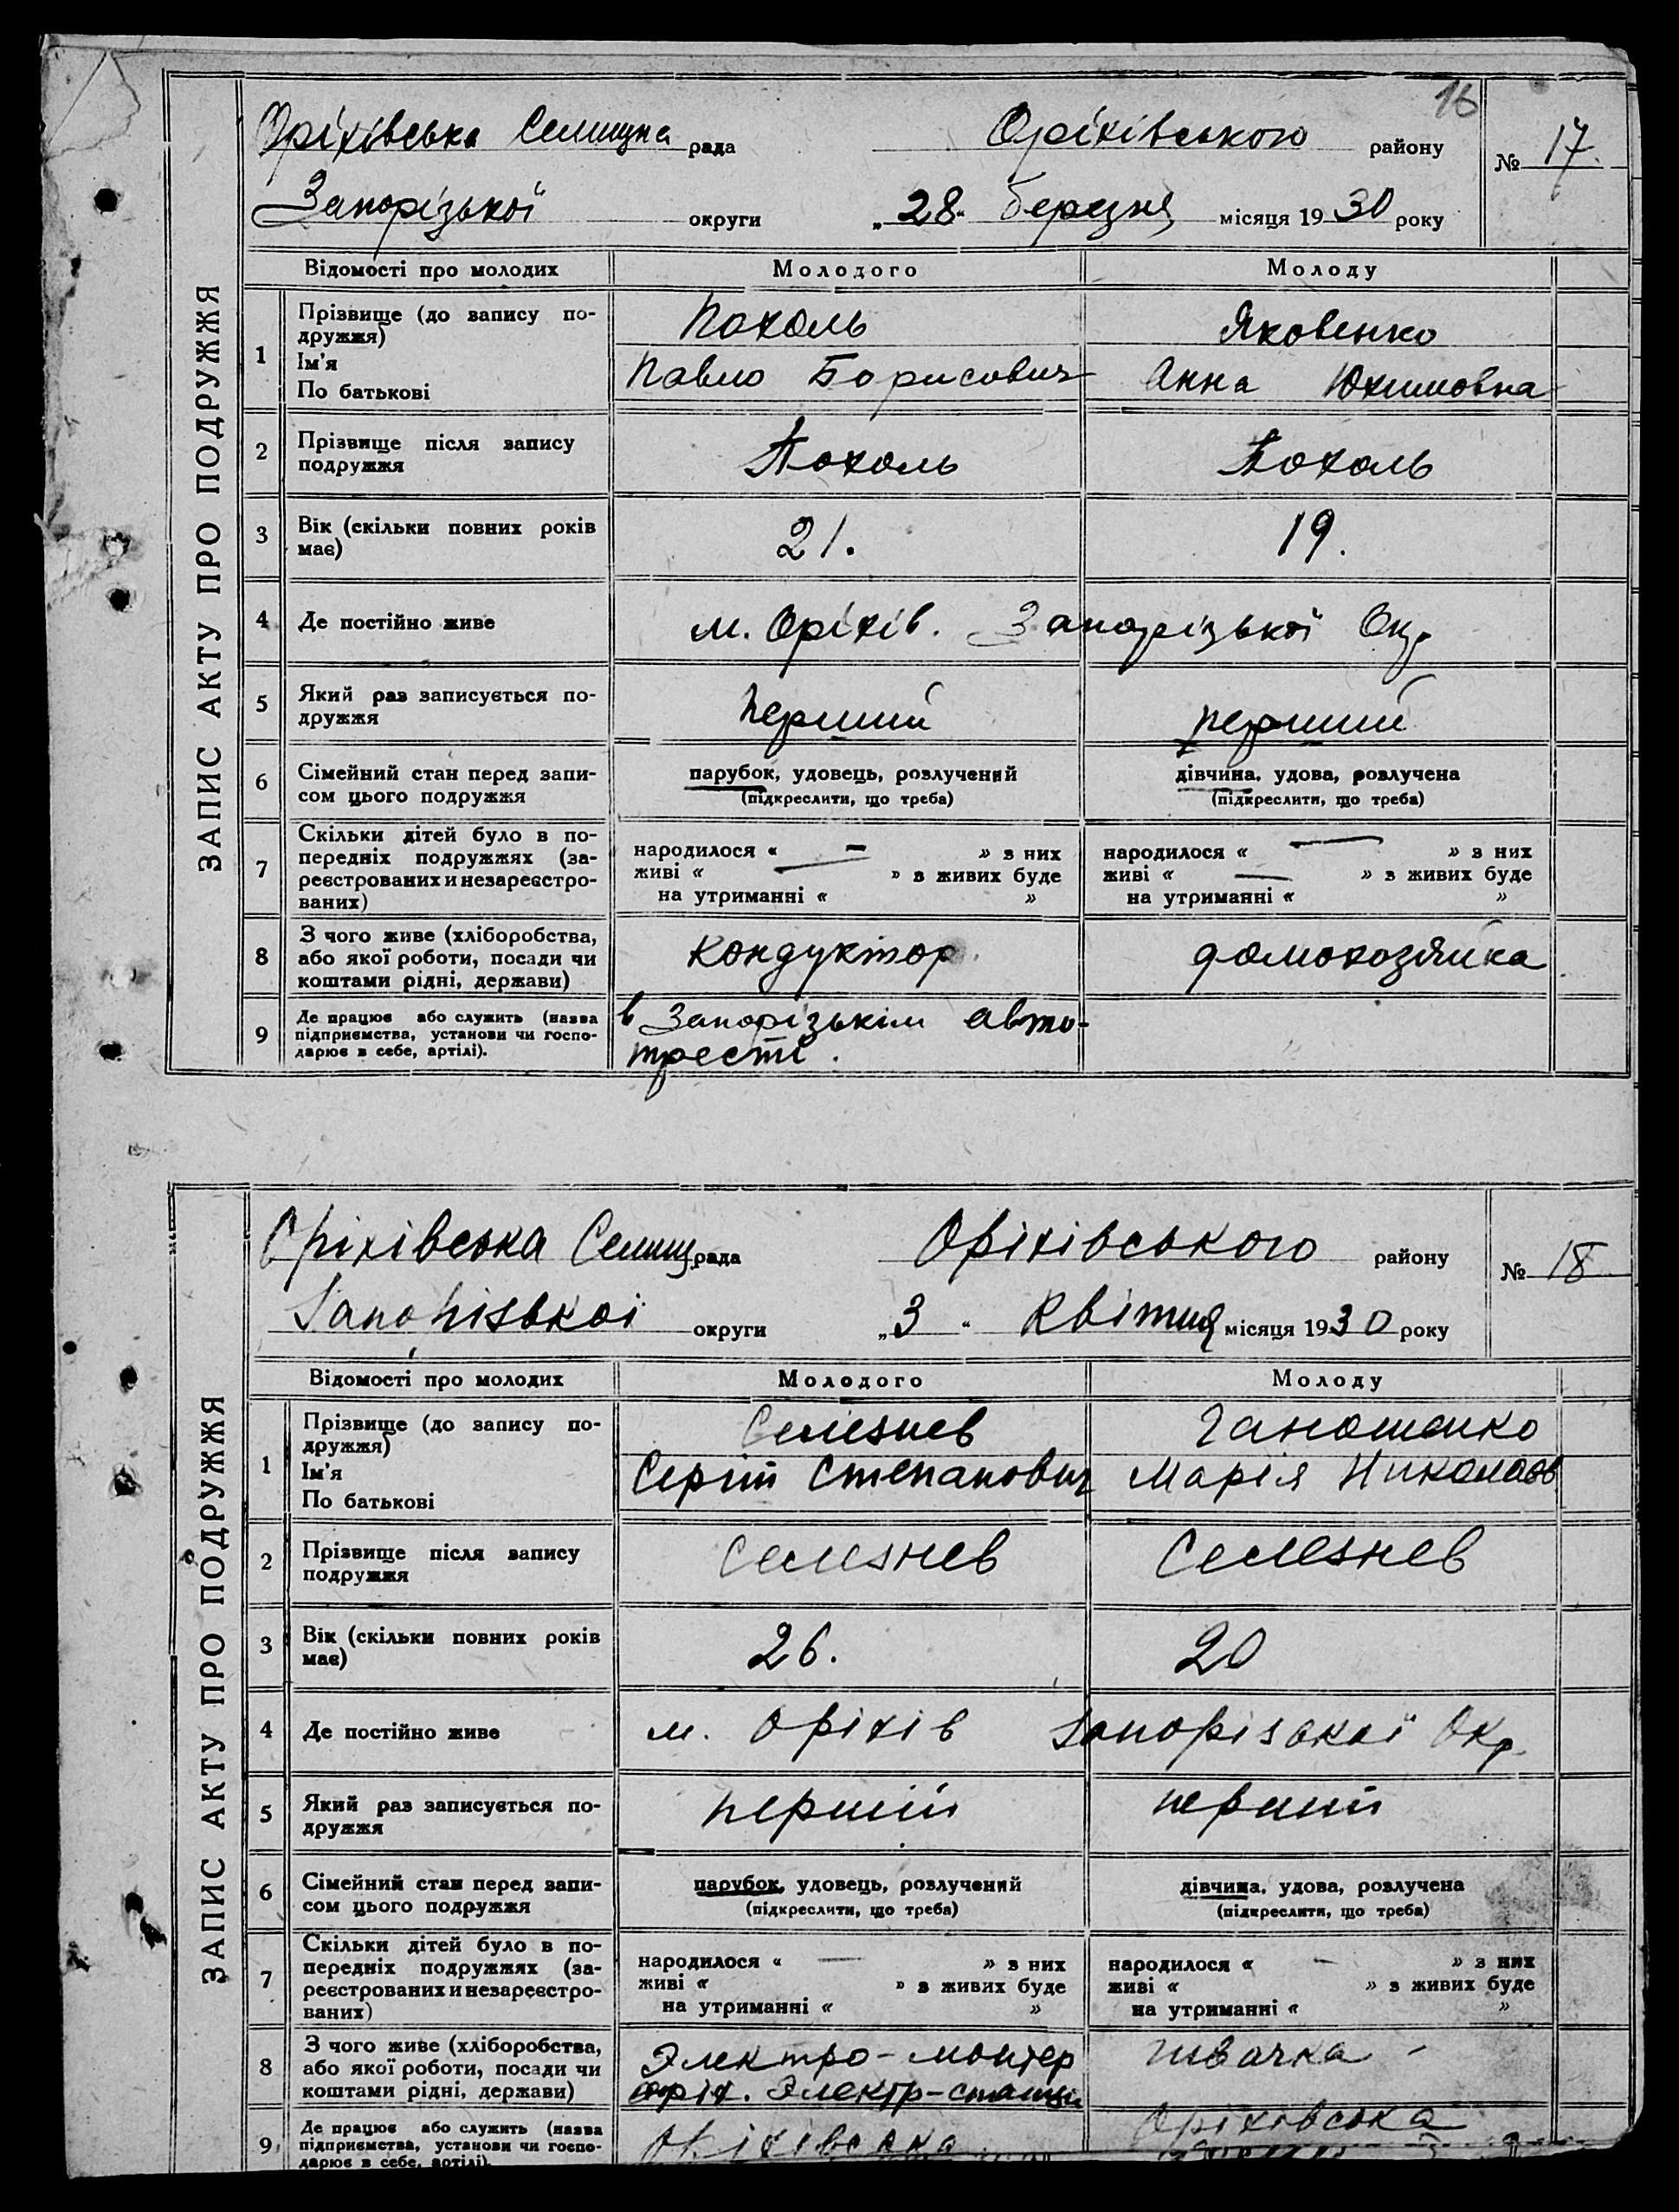 16
Оріхівська Селищна рада Оріхівського району № 17.
Запорізької округи „28“ березня місяця 1930 року
ЗАПИС АКТУ ПРО ПОДРУЖЖЯ
Відомості про молодих Молодого Молоду
1 Прізвище (до запису по-
дружжя)
Ім'я
По батькові
Похоль Яковенко
Павло Борисович Анна Юхимовна
2 Прізвище після запису
подружжя
Похоль Похоль
3 Вік (скільки повних років
має)
21. 19.
4 Де постійно живе м. Оріхів. Запорізької Окр
5 Який раз записується по-
дружжя
перший перший
6 Сімейний стан перед запи-
сом цього подружжя
парубок, удовець, розлучений
(підкреслити, що треба)
дівчина, удова, розлучена
(підкреслити, що треба)
7 Скільки дітей було в по-
передніх подружжях (за-
реєстрованих и незареєстро-
ваних)
народилося « — » з них
живі « — » з живих буде
на утриманні « »
народилося « — » з них
живі « — » з живих буде
на утриманні « »
8 З чого живе (хліборобства,
або якої роботи, посади чи
коштами рідні, держави)
кондуктор домохозяйка
9 Де працює або служить (назва
підприємства, установи чи госпо-
дарює в себе, артілі).
в Запорізькім авто-
тресті.
Оріхівська Селищ рада Оріхівського району № 18
Запорізької округи „3“ Квітня місяця 1930 року
ЗАПИС АКТУ ПРО ПОДРУЖЖЯ
Відомості про молодих Молодого Молоду
1 Прізвище (до запису по-
дружжя)
Ім'я
По батькові
Селезнев Ганошенко
Сергій Степанович Марія Николаєв
2 Прізвище після запису
подружжя
Селезнев Селезнев
3 Вік (скільки повних років
має)
26. 20
4 Де постійно живе м. Оріхів Запорізької Окр.
5 Який раз записується по-
дружжя
перший перший
6 Сімейний стан перед запи-
сом цього подружжя
парубок, удовець, розлучений
(підкреслити, що треба)
дівчина, удова, розлучена
(підкреслити, що треба)
7 Скільки дітей було в по-
передніх подружжях (за-
реєстрованих и незареєстро-
ваних)
народилося « — » з них
живі « » з живих буде
на утриманні « »
народилося « - » з них
живі « » з живих буде
на утриманні « »
8 З чого живе (хліборобства,
або якої роботи, посади чи
коштами рідні, держави)
Электро-монтер
оріх. Электр-станци
швачка -
9 Де працює або служить (назва
підприємства, установи чи госпо-
дарює в себе, артілі).
Оріхівська Оріхівська